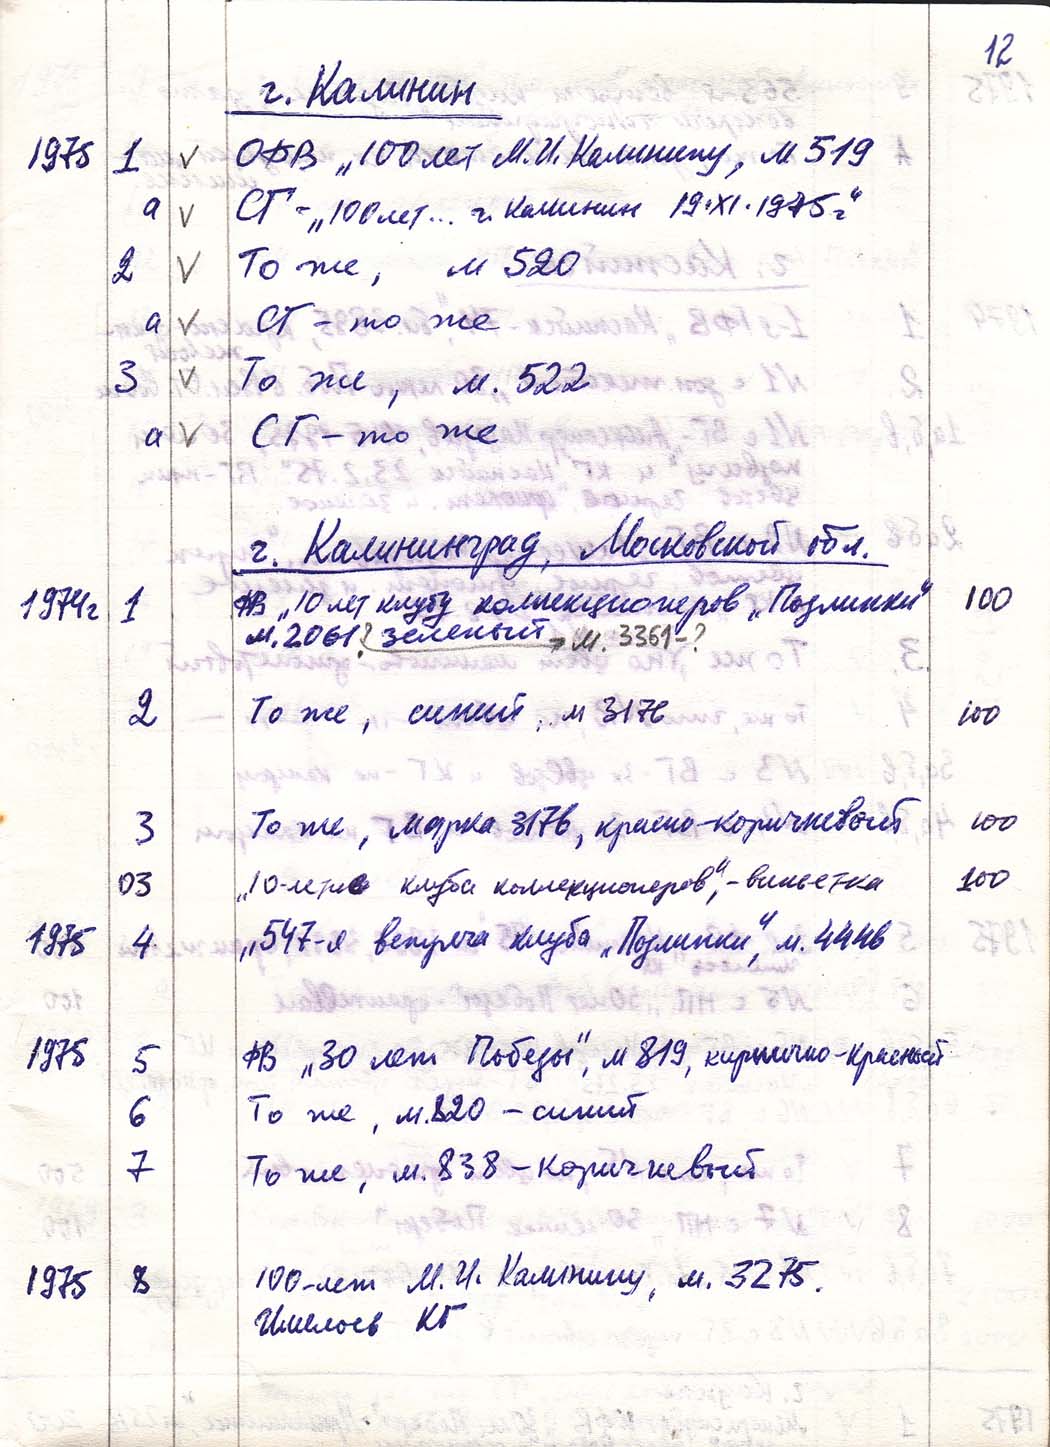 12
г. Калинин
1975 1 ✓ ОФВ „100 лет М.И. Калинину, м 519
а ✓ СГ - „100 лет... г. Калинин 19.XI.1975 г."
2 ✓ То же, м 520
а ✓ СГ - то же
3 ✓ То же, м. 522
а ✓ СГ - то же
г. Калининград, Московской обл.
1974г 1 ФВ „10 лет клубу коллекционеров „Подлипки" 100
м. 2061? зеленый → м. 3361-?
2 То же, синий, м 3176 100
3 То же, марка 3176, красно-коричневый 100
03 „10-летие клуба коллекционеров", - виньетка 100
1975 4 „547-я встреча клуба „Подлипки", м. 4446
1975 5 ФВ „30 лет Победы", м 819, кирпично-красный
6 То же, м. 820 - синий
7 То же, м. 838 - коричневый
1975 8 100-лет М.И. Калинину, м. 3275.
Имелось КГ